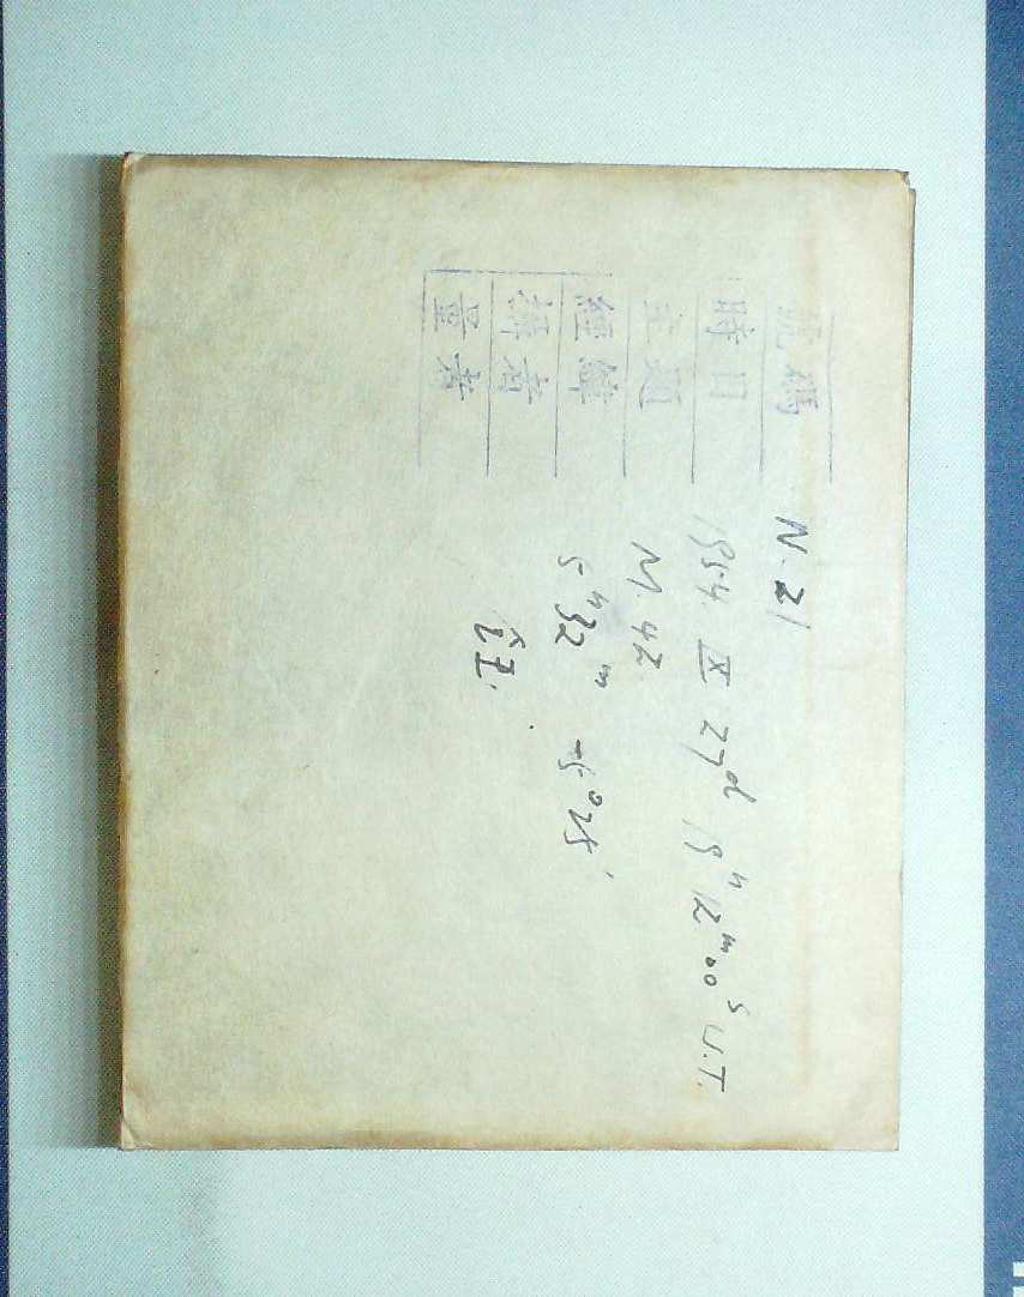 號碼 N. 21
時日 1954 IX 27d 19h 12m 00s U.T.
主題 M. 42
經緯 5h 32m -5° 25'
攝者
量者